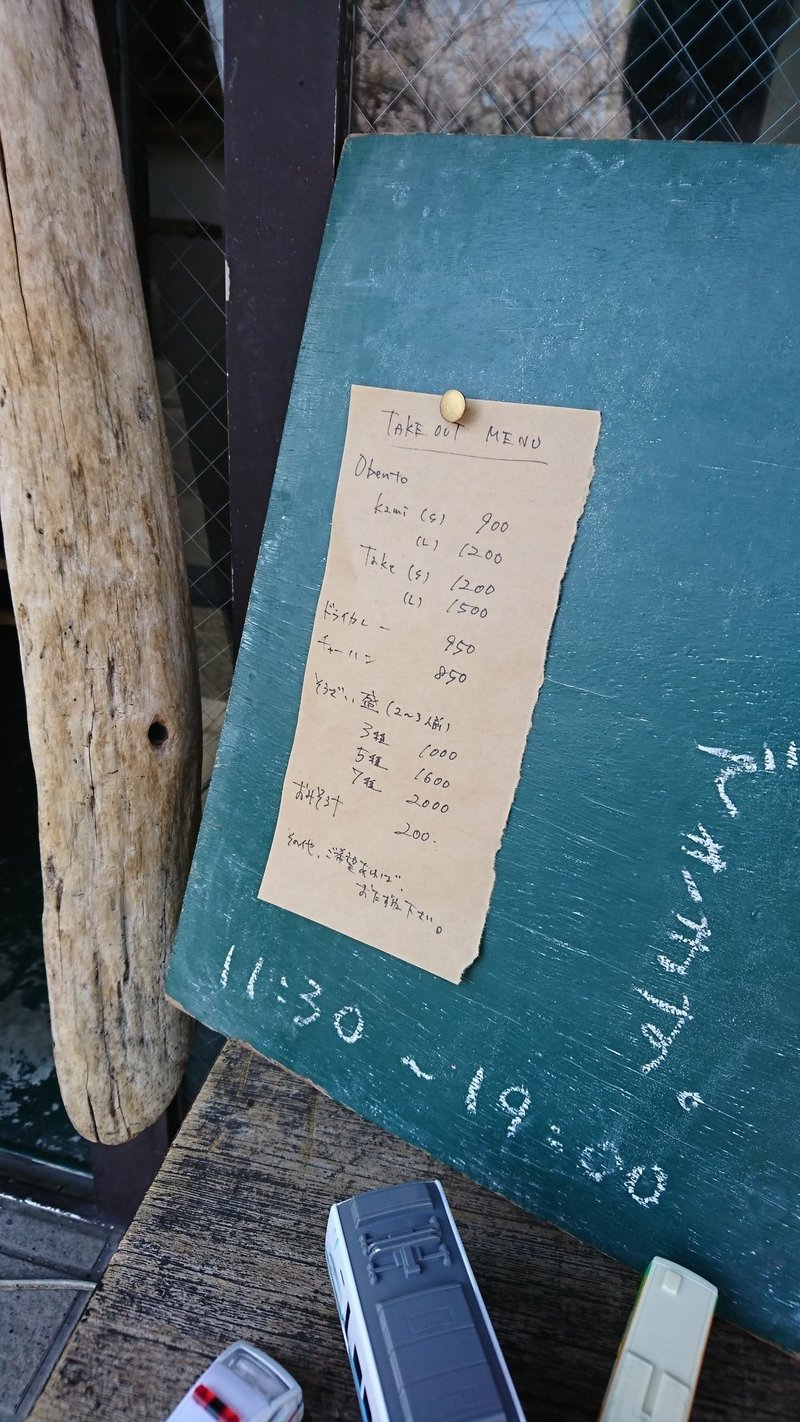 TAKE OUT MENU
Obento
kami (S) 900
(L) 1200
Take (S) 1200
(L) 1500
ドライカレー 950
チャーハン 850
そうざい 盛 (2〜3人前)
3種 1000
5種 1600
7種 2000
おみそ汁 200.
その他、ご希望あれば、
おたずね下さい。
11:30 〜 19:00